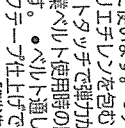 リエチレンを包む
トタッチで弾力が
業ベルト使用時の
す。●ベルト通し
テープ仕上げで